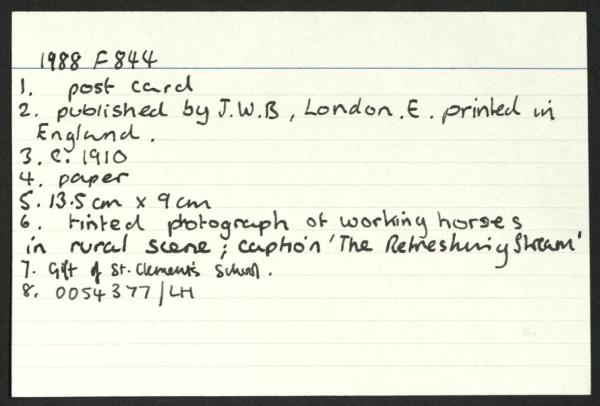 1988 F 844
1. post card
2. published by J.W.B, London. E. printed in
England.
3. c. 1910
4. paper
5. 13.5 cm x 9 cm
6. tinted photograph of working horses
in rural scene; caption 'The Refreshing Stream'
7. Gift of St. Clement's School.
8. 0054377/LH